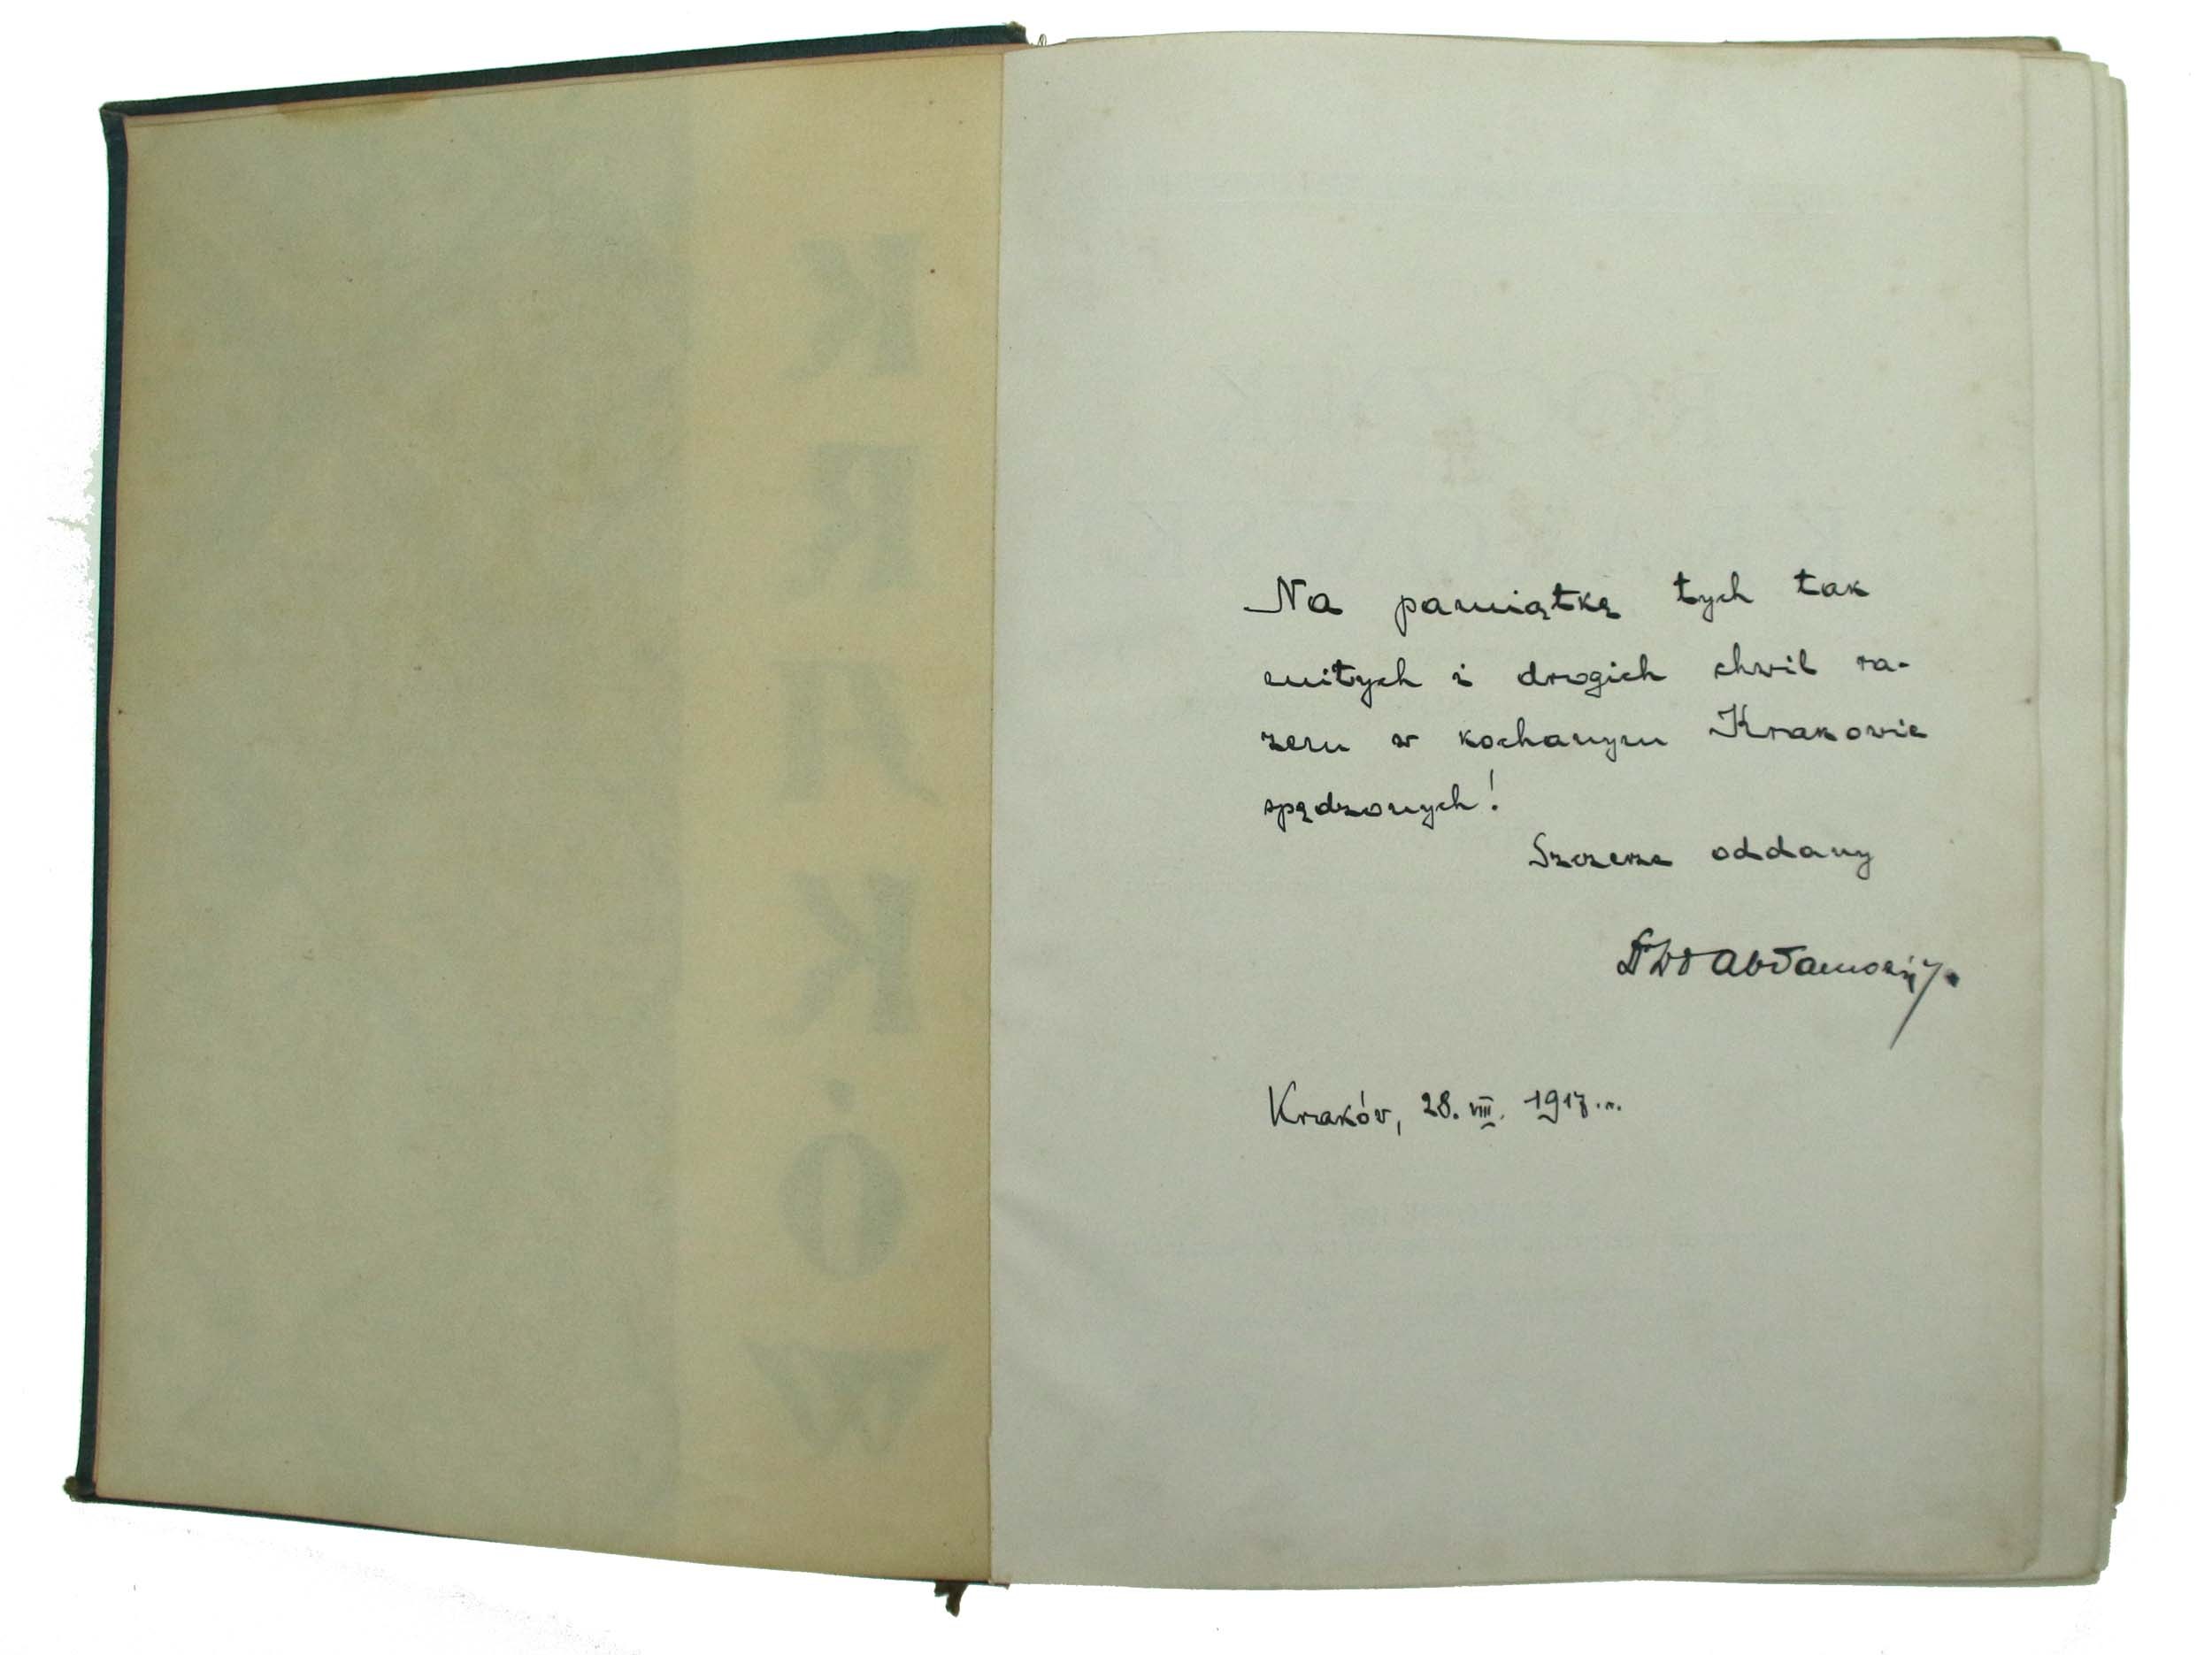 KRAKÓW
Na pamiątkę tych tak
miłych i drogich chwil ra-
zem w kochanym Krakowie
spędzonych!
Szczerze oddany
Kraków, 28. VIII. 1917. r.